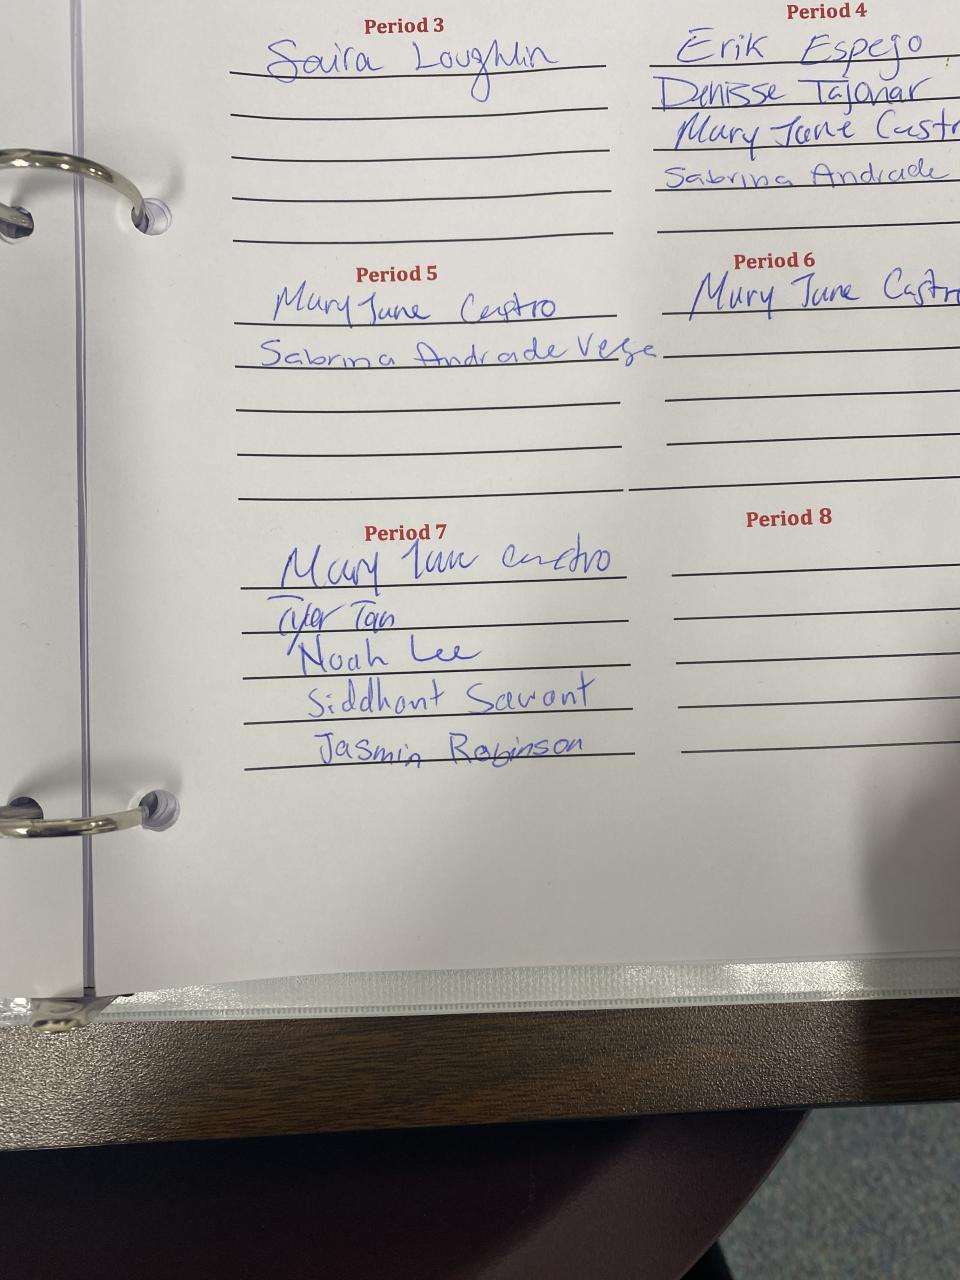 Period 3
Saira Loughlin
Period 4
Erik Espejo
Denisse Tajonar
Mary Jane Castr
Sabrina Andrade
Period 5
Mary Jane Castro
Sabrina Andrade Vega
Period 6
Mary Jane Castro
Period 7
Mary Jane Castro
Tyler Tan
Noah Lee
Siddhant Savant
Jasmin Robinson
Period 8